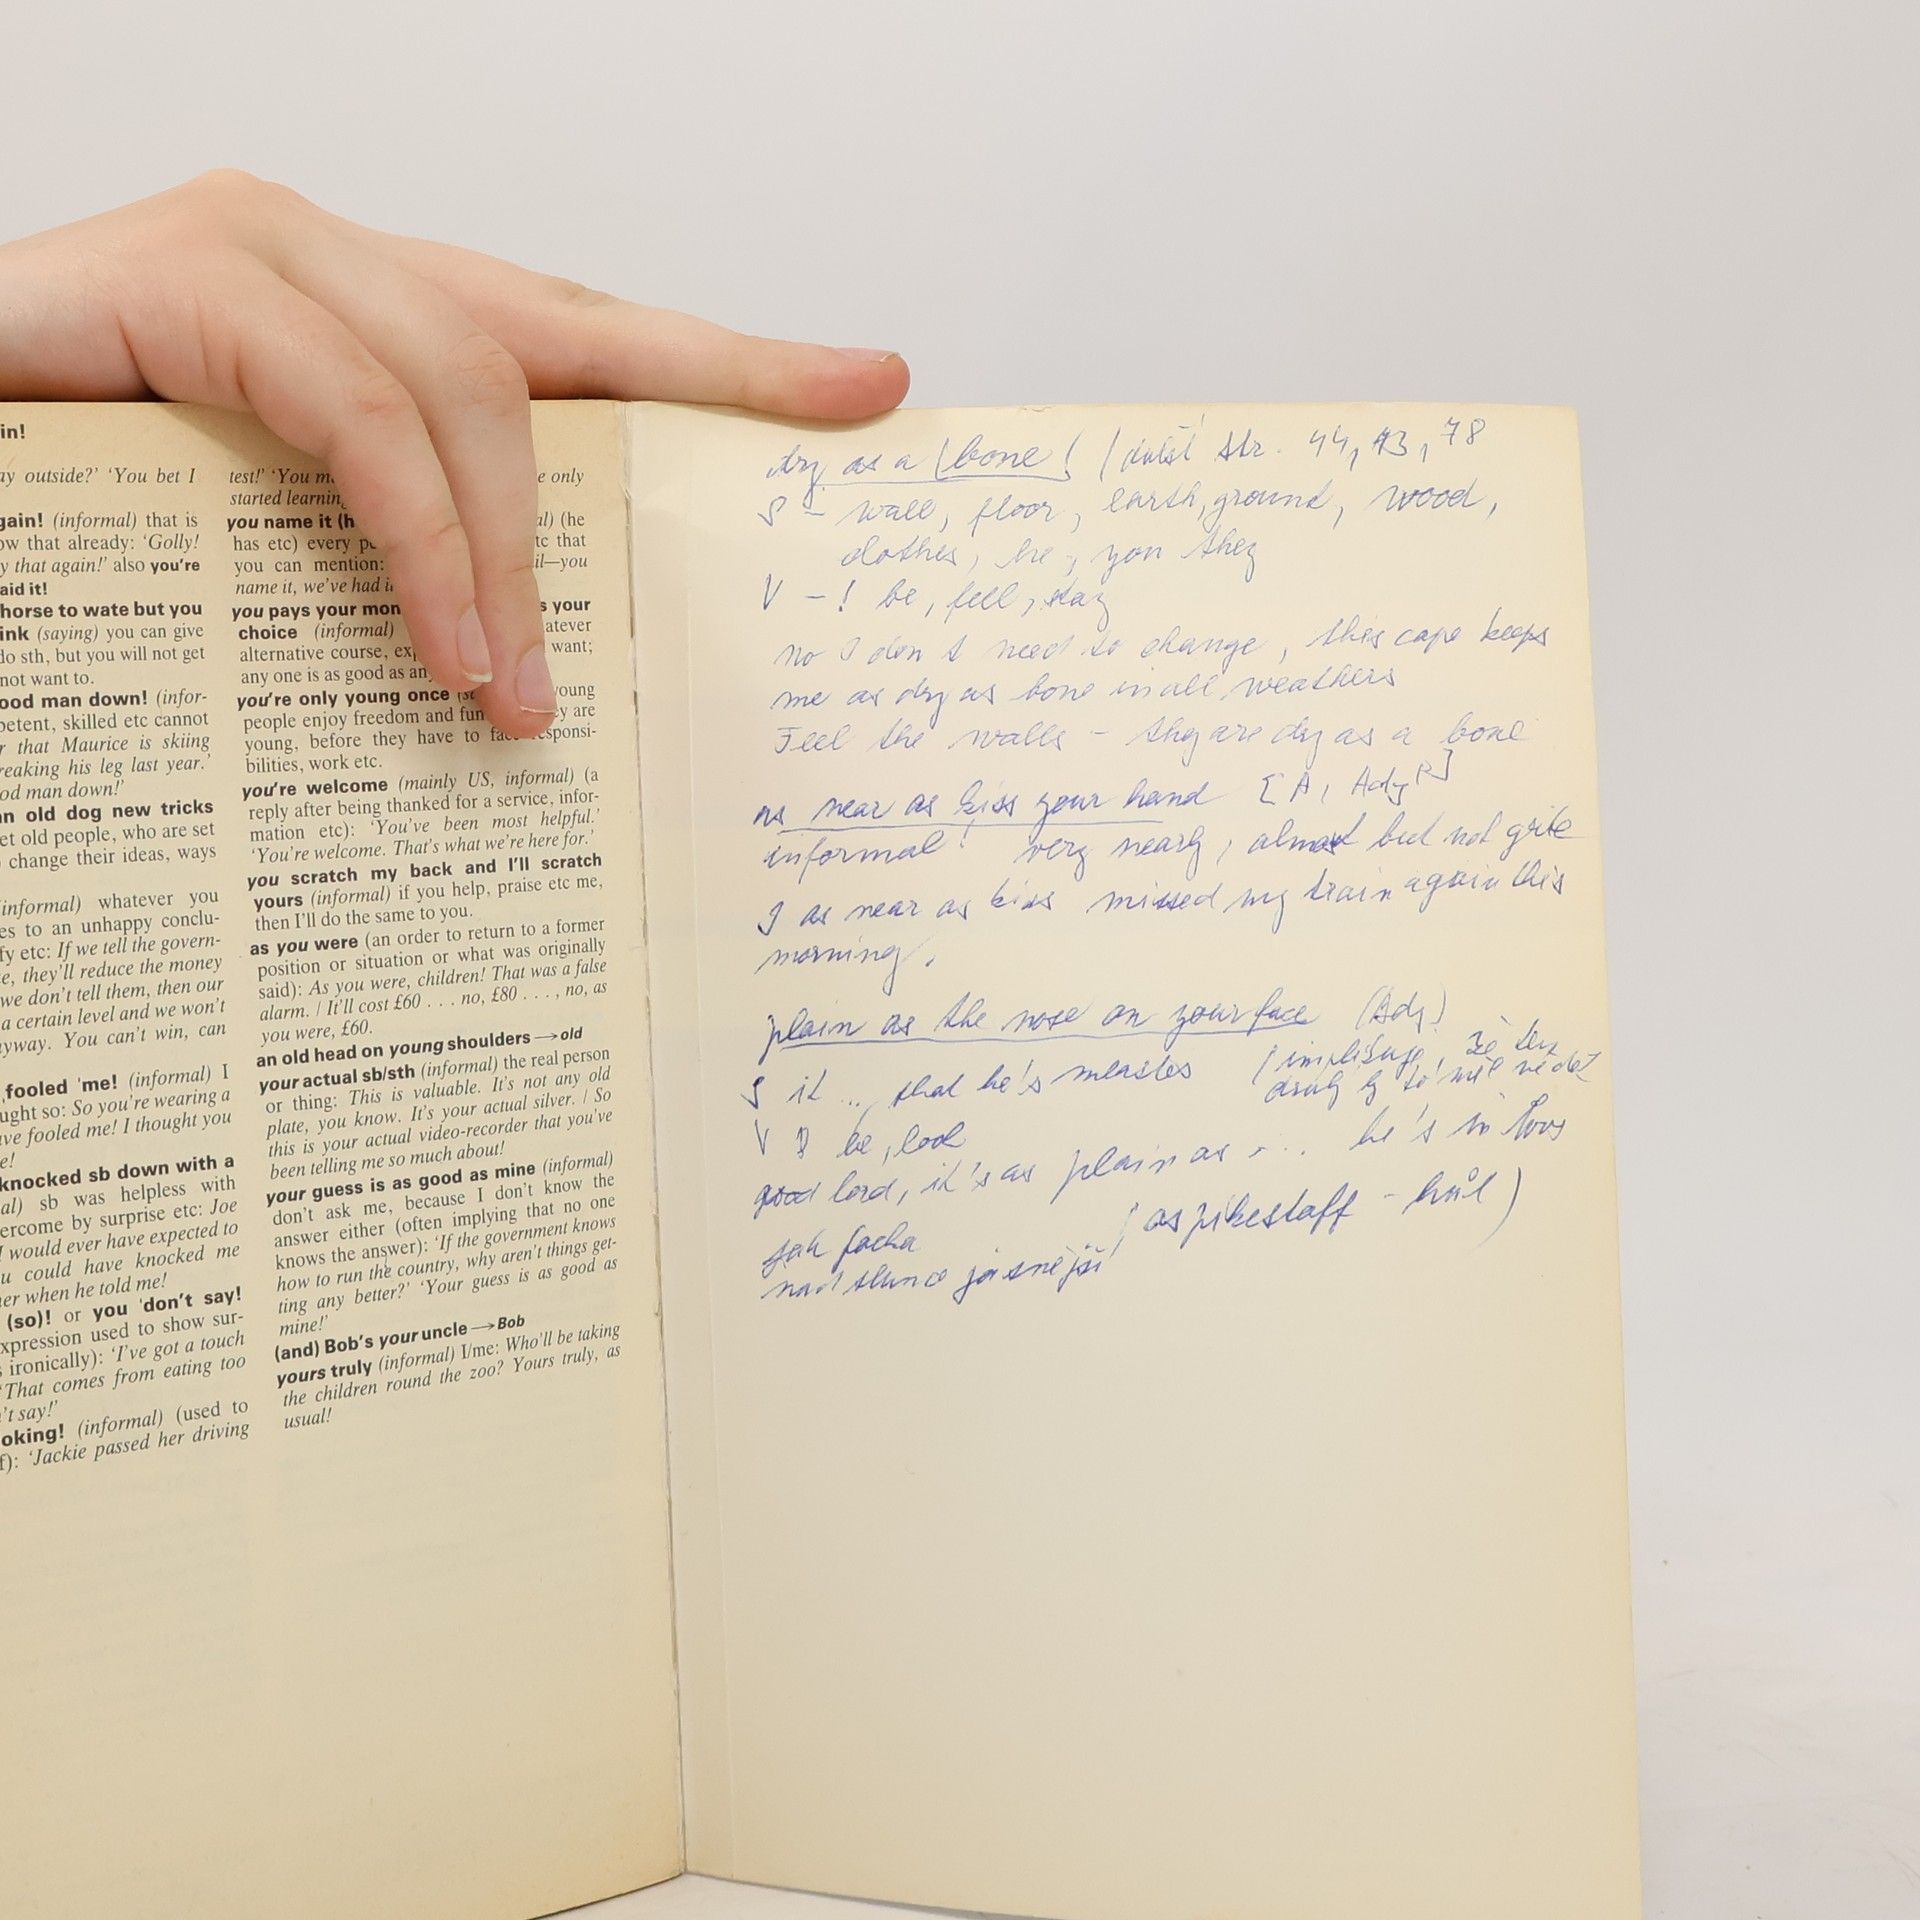 in!
ay outside?’ ‘You bet I
gain! (informal) that is
ow that already: ‘Golly!
y that again!’ also you're
aid it!
horse to wate but you
ink (saying) you can give
do sth, but you will not get
not want to.
ood man down! (infor-
petent, skilled etc cannot
r that Maurice is skiing
reaking his leg last year.’
od man down!’
an old dog new tricks
et old people, who are set
change their ideas, ways
(informal) whatever you
es to an unhappy conclu-
fy etc: If we tell the govern-
te, they'll reduce the money
we don't tell them, then our
a certain level and we won't
nyway. You can't win, can
fooled 'me! (informal) I
ought so: So you're wearing a
ve fooled me! I thought you
e!
knocked sb down with a
al) sb was helpless with
ercome by surprise etc: Joe
I would ever have expected to
u could have knocked me
her when he told me!
(so)! or you 'don't say!
expression used to show sur-
s ironically): ‘I've got a touch
‘That comes from eating too
n't say!’
oking! (informal) (used to
f): ‘Jackie passed her driving
test!’ ‘You e only
started learnin
you name it (h al) (he
has etc) every tc that
you can mention: il—you
name it, we've had i
you pays your mon s your
choice (informal) atever
alternative course, ex want;
any one is as good as any
you're only young once young
people enjoy freedom and fun ey are
young, before they have to face responsi-
bilities, work etc.
you're welcome (mainly US, informal) (a
reply after being thanked for a service, infor-
mation etc): ‘You've been most helpful.’
‘You're welcome. That's what we're here for.’
you scratch my back and I'll scratch
yours (informal) if you help, praise etc me,
then I'll do the same to you.
as you were (an order to return to a former
position or situation or what was originally
said): As you were, children! That was a false
alarm. / It'll cost £60 . . . no, £80 . . . , no, as
you were, £60.
an old head on young shoulders → old
your actual sb/sth (informal) the real person
or thing: This is valuable. It's not any old
plate, you know. It's your actual silver. / So
this is your actual video-recorder that you've
been telling me so much about!
your guess is as good as mine (informal)
don't ask me, because I don't know the
answer either (often implying that no one
knows the answer): ‘If the government knows
how to run the country, why aren't things get-
ting any better?’ ‘Your guess is as good as
mine!’
(and) Bob's your uncle → Bob
yours truly (informal) I/me: Who'll be taking
the children round the zoo? Yours truly, as
usual!
dry as a (bone) (další str. 44, 73, 78
S - wall, floor, earth, ground, wood,
clothes, he, you they
V - ! be, feel, stay
no I don't need to change, this cape keeps
me as dry as bone in all weathers
Feel the walls - they are dry as a bone
as near as kiss your hand [A, AdyP]
informal! very nearly, almost but not qite
I as near as kiss missed my train again this
morning.
plain as the nose on your face (Adj)
S it ... that he's measles (implikuje, že ten
druhý by to měl vědět
V be, look
good lord, it's as plain as ... he's in love
jak facka (as pikestaff - hůl)
nad slunce jasnější